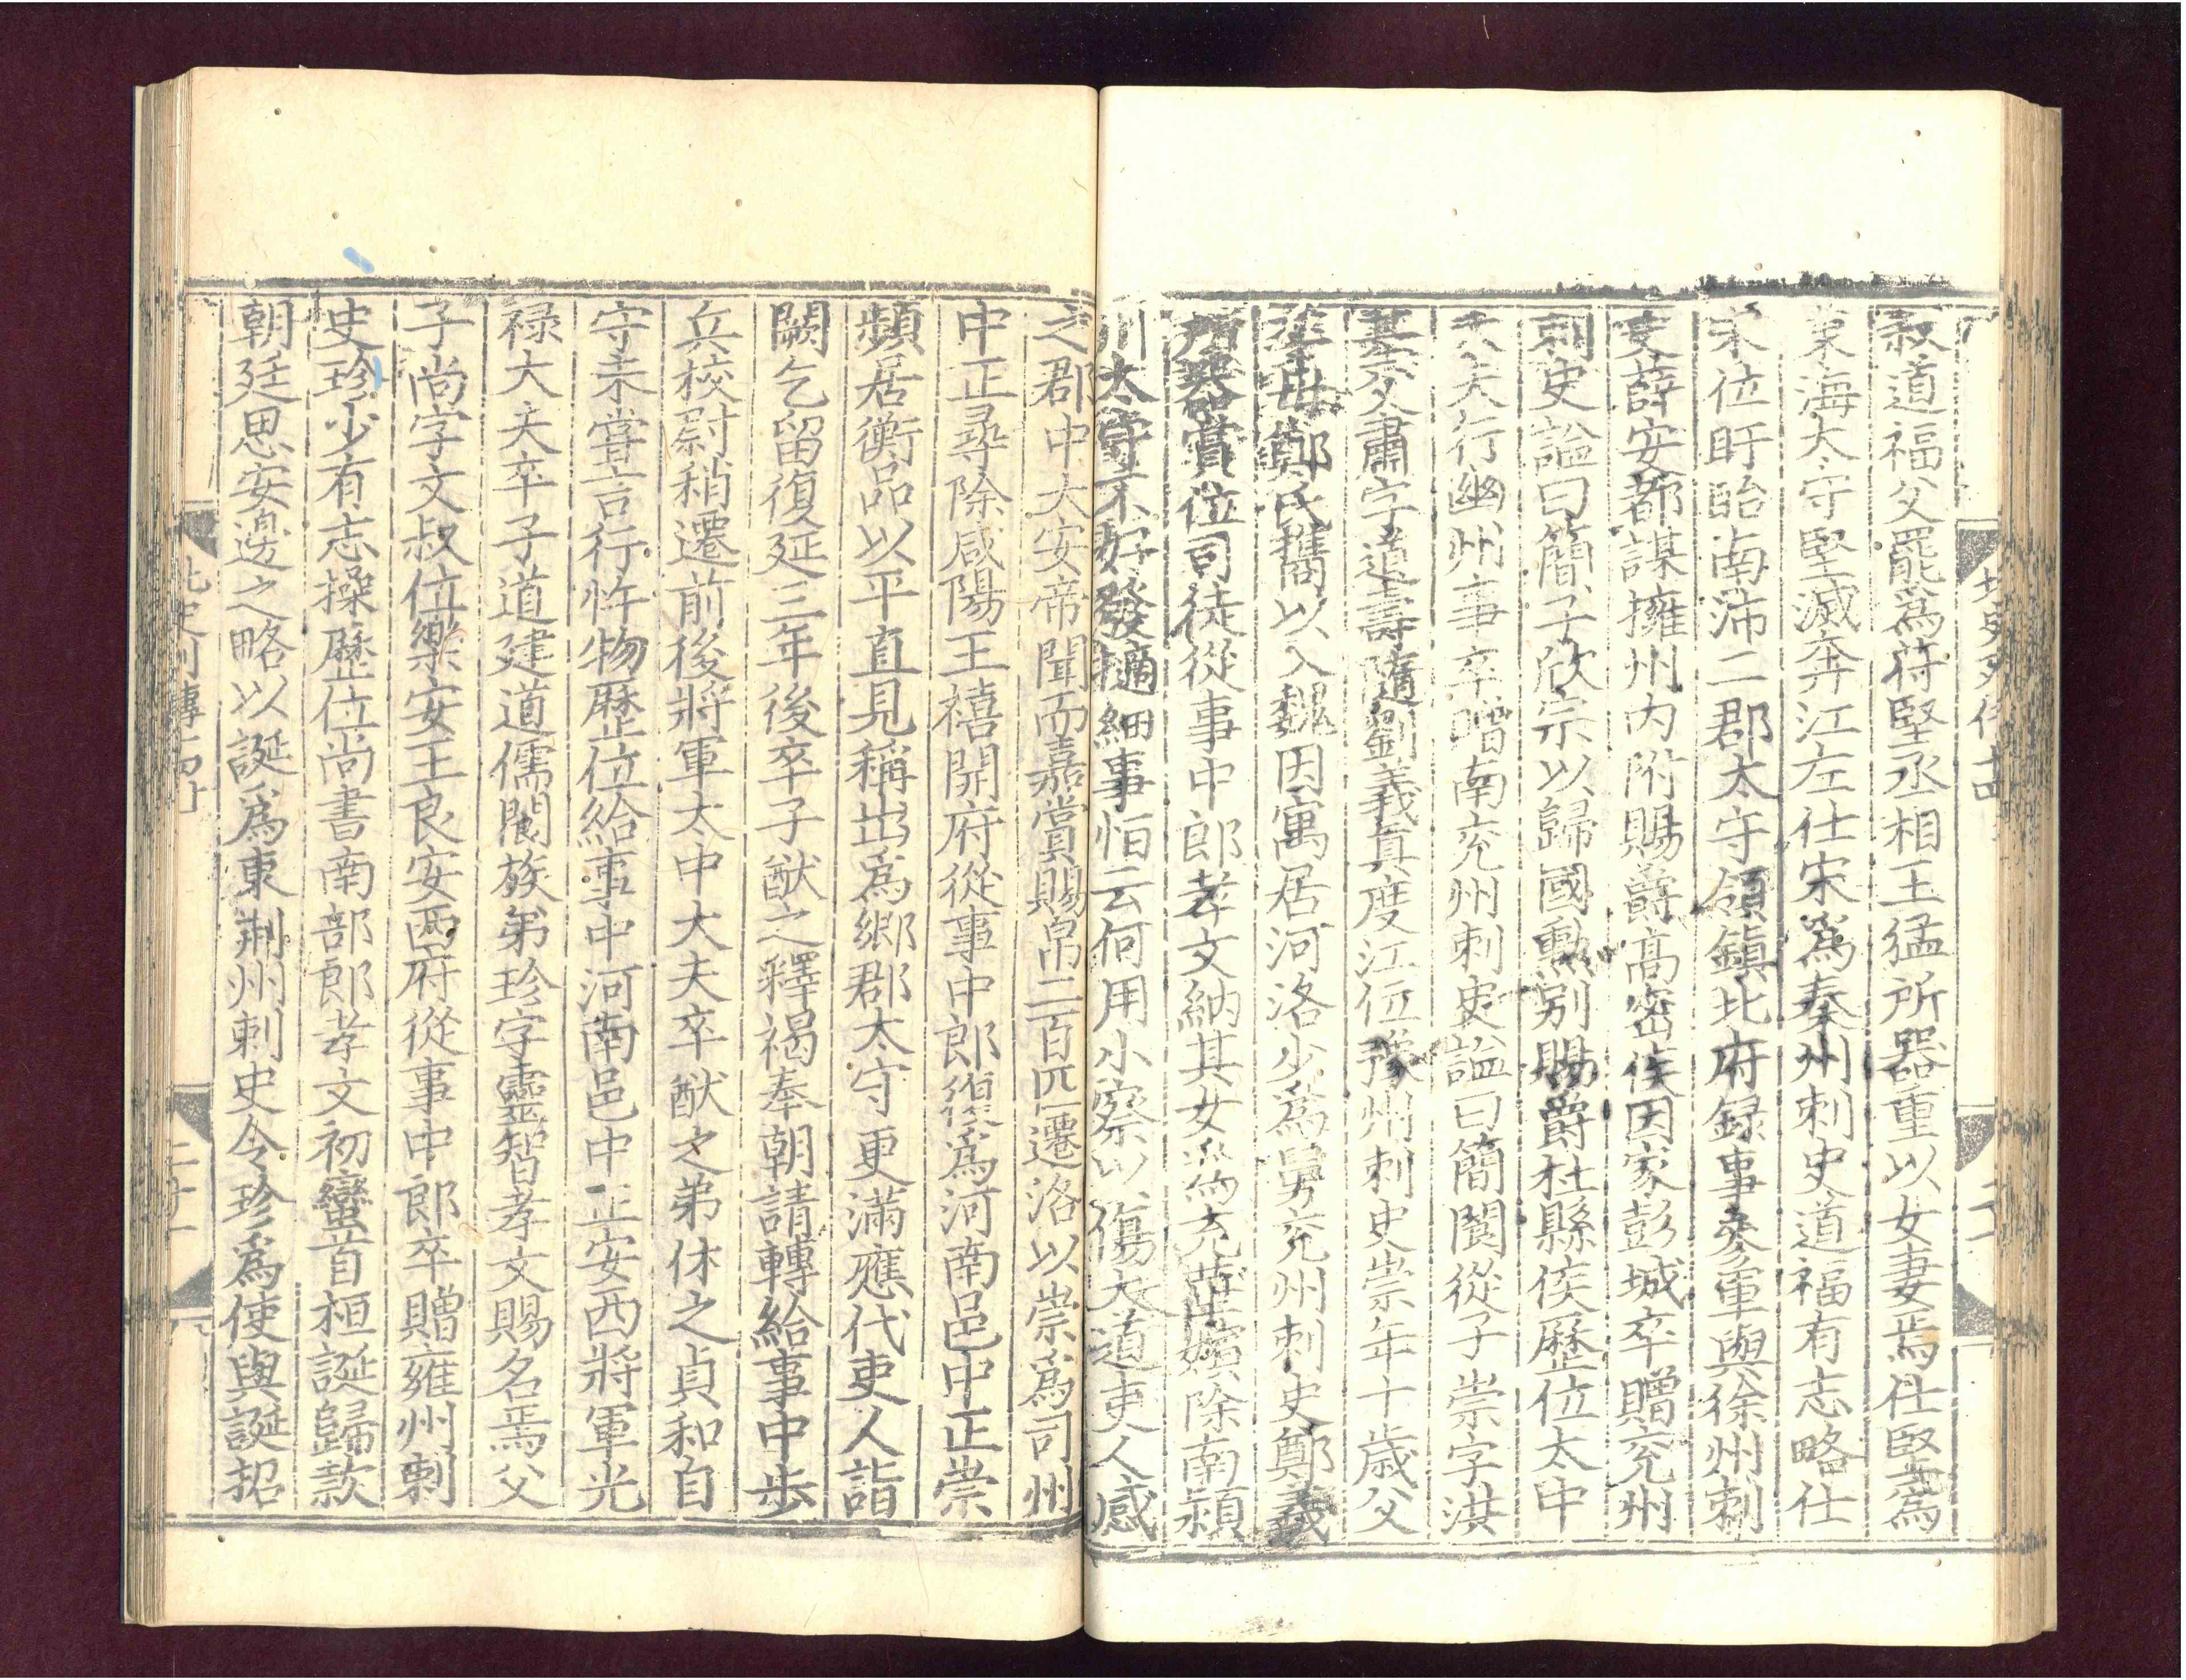 叔道福父罷爲苻堅丞相王猛所器重以女妻焉仕堅爲
東海太守堅滅奔江左仕宋爲秦州刺史道福有志略仕
宋位盱眙南沛二郡太守領鎮北府録事參軍與徐州刺
史薛安都謀擁州内附賜爵高密侯因家彭城卒贈兖州
刺史謚曰簡子欣宗以歸國勲别賜爵杜縣侯歷位太中
大夫行幽州事卒贈南兖州刺史謚曰簡閬從子崇字洪
基父肅字道壽隨劉義真度江位豫州刺史崇年十歳父
卒母鄭氏攜以入魏因寓居河洛少爲舅兖州刺史鄭羲
所器賞位司徒從事中郎孝文納其女爲充華嬪除南潁
川太守不好發擿細事恒云何用小察以傷大道吏人感
之郡中大安帝聞而嘉賞賜帛二百匹遷洛以崇爲司州
中正尋除咸陽王禧開府從事中郎復爲河南邑中正崇
頻居衡品以平直見稱出爲鄉郡太守更滿應代吏人詣
闕乞留復延三年後卒子猷之釋褐奉朝請轉給事中步
兵校尉稍遷前後將軍太中大夫卒猷之弟休之貞和自
守未嘗言行忤物歷位給事中河南邑中正安西將軍光
禄大夫卒子道建道儒閬族弟珍字靈智孝文賜名焉父
子尚字文叔位樂安王良安西府從事中郎卒贈雍州刺
史珍少有志操歷位尚書南部郎孝文初蠻首桓誕歸款
朝廷思安邊之略以誕爲東荆州刺史令珍爲使與誕招
北史列傳十四
二十一